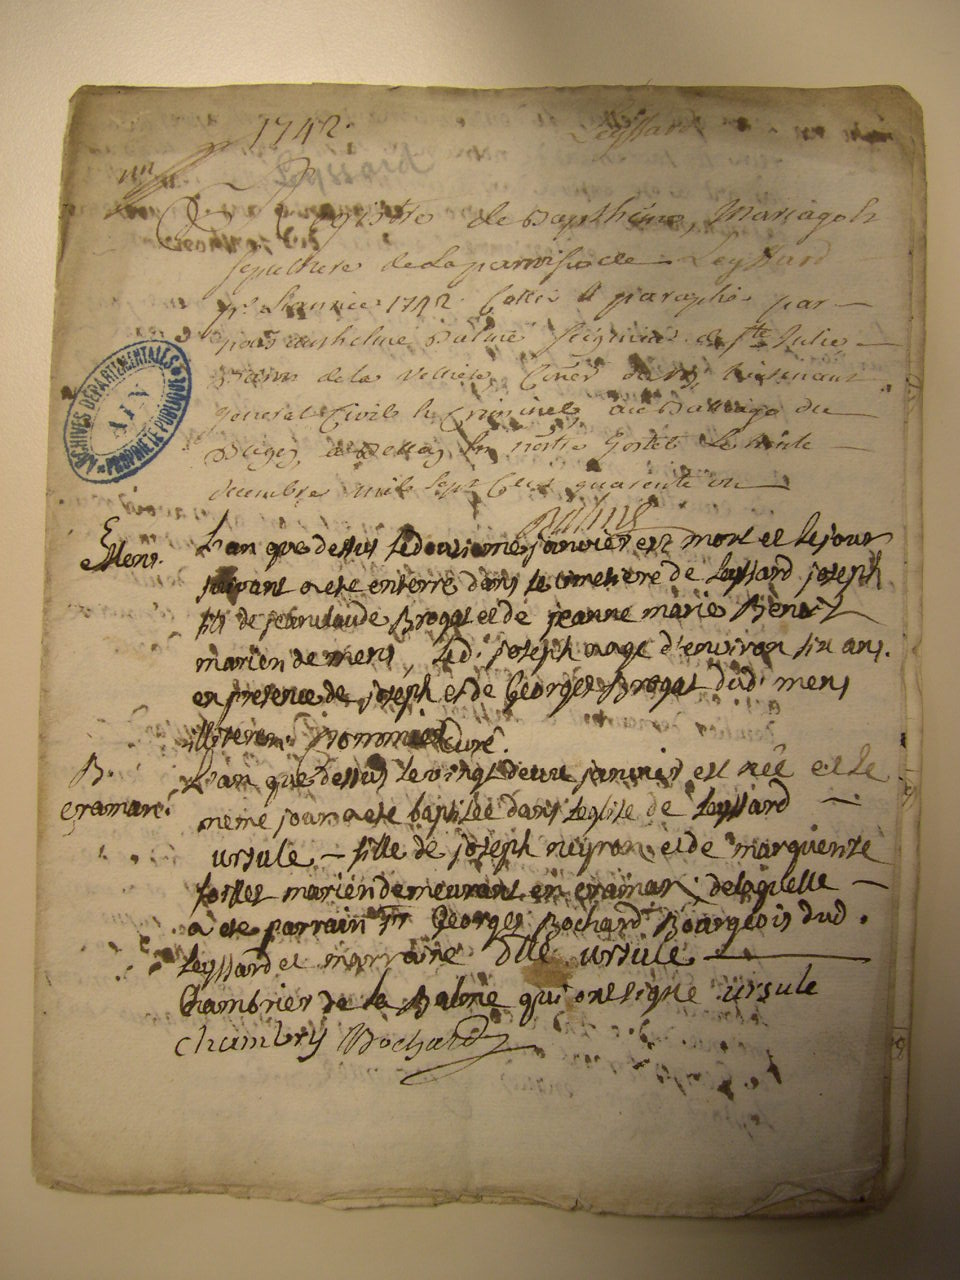 1742. Leyssard
Registre de Bapthême, Mariage &
sepulture de la parroisse de Leyssard
pr. L'année 1742 Cottés & paraphés par
nous anthelme Balme seigneur de ste Julie
Baron de la Velliere, Conser du Roy, Lieutenant
general Civile & Criminel, au Balliage du
Bugey, à Belley En nôtre hostel Le trente
decembre mil sept Cens quarente un
Balme
ARCHIVES DÉPARTEMENTALES
AIN
PROPRIÉTÉ PUBLIQUE
E
Mens.
L'an que dessus le douzieme janvier est mort et le jour
suivant a eté enterré dans le cimetiere de Leyssard joseph
fils de jean claude Brogat et de jeanne marie Benoit
mariéz de mens, led. joseph aagé d'environ six ans.
en presence de joseph et de Georges Brogat dud. mens
illiterez. Curé.
B.
eramans.
L'an que dessus le vingt deux janvier est née et le
meme jour a eté baptisée dans l'eglise de Leyssard
ursule fille de joseph neyron et de marguerite
mariéz demeurant en eramans; de laquelle
à eté parrain sr Georges Bochard Bourgeois dud.
Leyssard et marraine dlle ursule
Chambrier de la Balme qui ont signé ursule
chambry Bochard